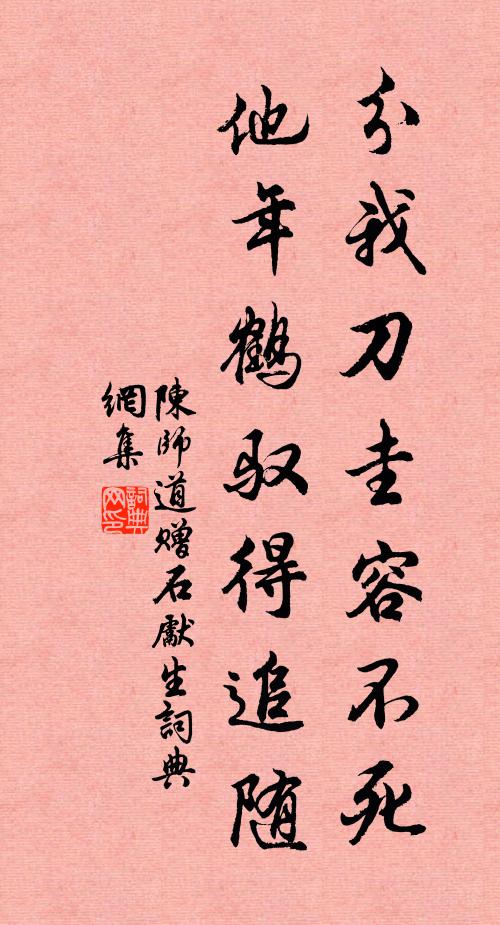 分我刀圭容不死
他年鶴驭得追随
陳師道贈石獻生詞典
網集
詞典
网印